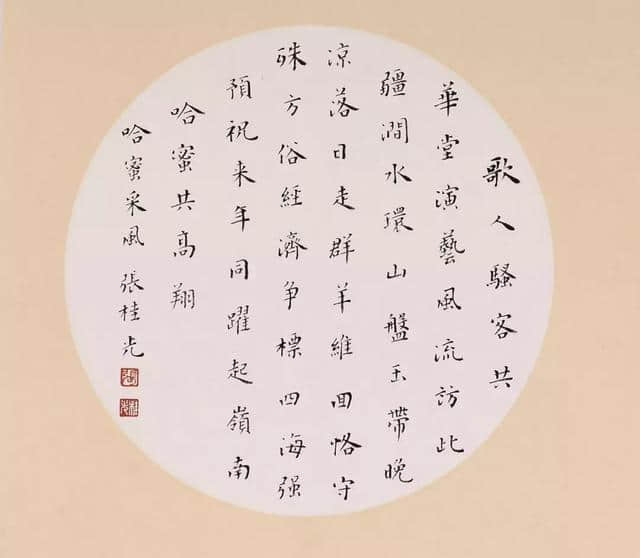 歌人騷客共
華堂演藝風流訪此
疆澗水環山盤玉帶晚
涼落日走群羊維回恪守
殊方俗經濟争標四海强
預祝来年同躍起嶺南
哈蜜共高翔
哈蜜采風 張桂光